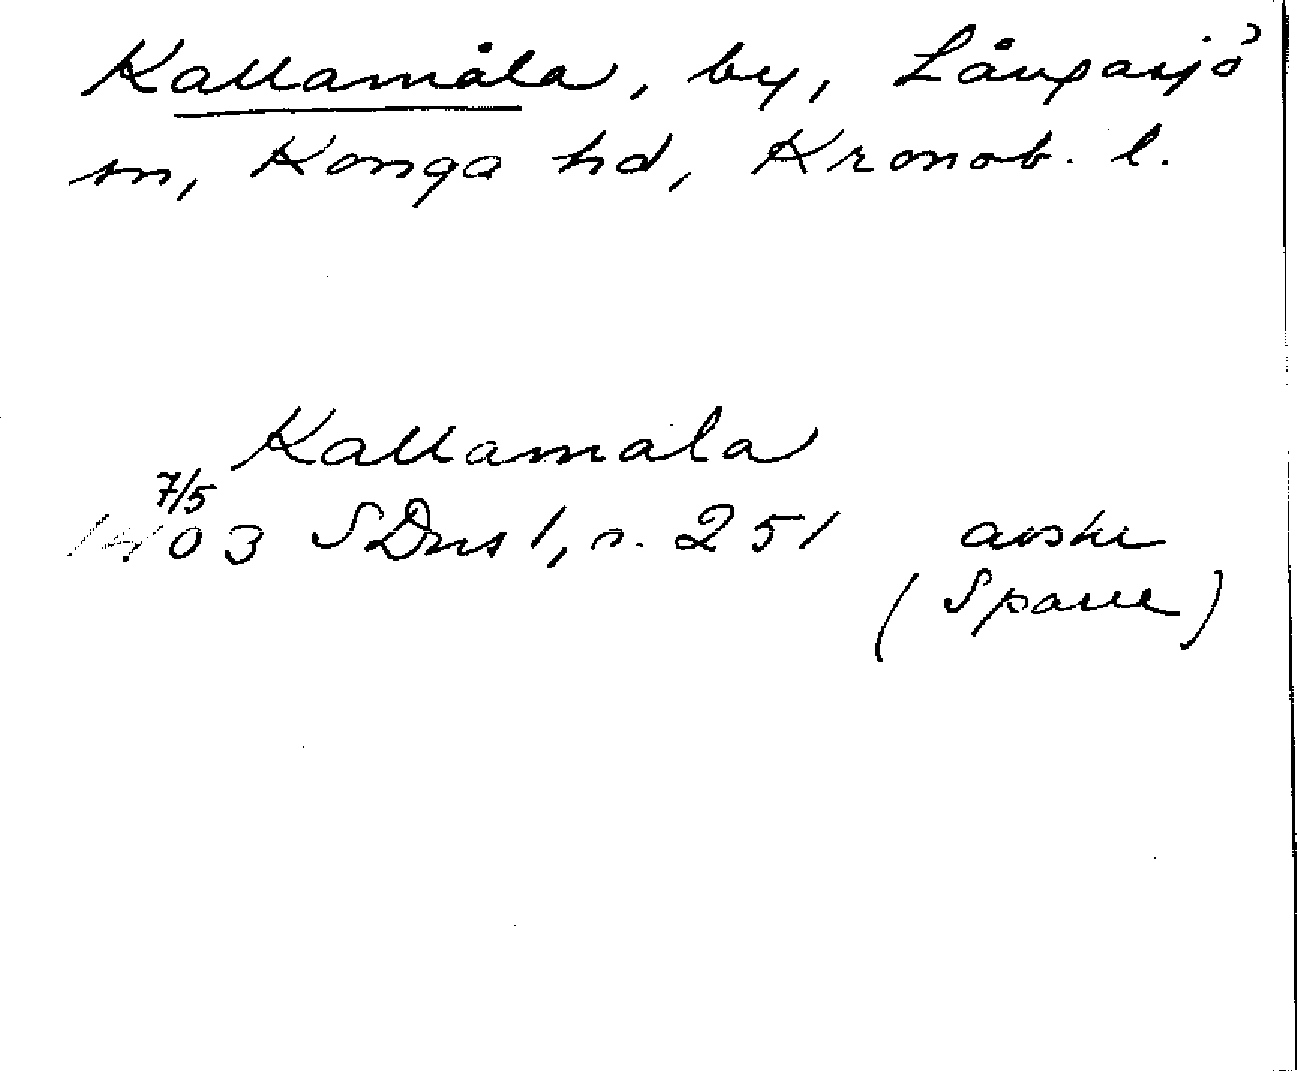 Kallamåla, by, Långasjö
sn, Konga hd, Kronob. l.
Kallamala
7/5
1403 SDns 1, s. 251 avskr
(Sparre)